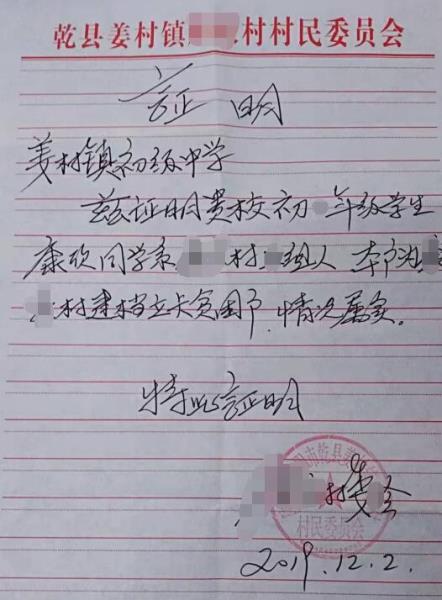 乾县姜村镇 村村民委员会
证明
姜村镇初级中学
兹证明贵校初 年级学生
康欣同学系 村 组人 本户为
村建档立卡贫困户,情况属实。
特此证明
村委会
市乾县姜
村民委员会
2019.12.2.